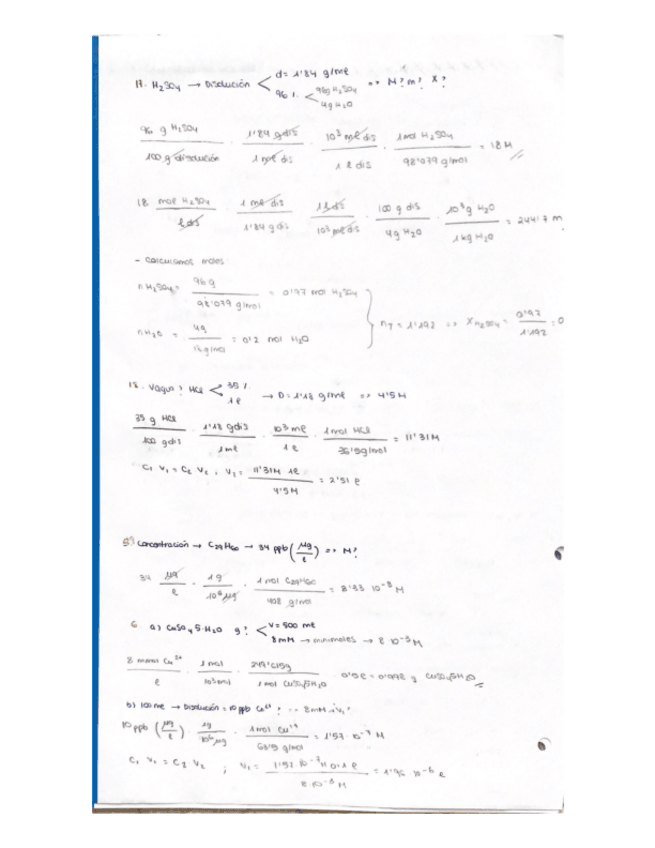 17. H₂SO₄ → Disolución < d = 1'84 g/ml
96 % < 96g H₂SO₄
4g H₂O
=> M? m? X?
96 g H₂SO₄ / 100 g disolución · 1'84 g dis / 1 ml dis · 10³ ml dis / 1 l dis · 1 mol H₂SO₄ / 98'079 g/mol = 18 M
18 mol H₂SO₄ / l dis · 1 ml dis / 1'84 g dis · 1 l dis / 10³ ml dis · 100 g dis / 4g H₂O · 10³ g H₂O / 1 kg H₂O = 244'7 m
- Calculamos moles
n H₂SO₄ = 96 g / 98'079 g/mol = 0'97 mol H₂SO₄
n H₂O = 4g / 18 g/mol = 0'2 mol H₂O
nT = 1'192 => X H₂SO₄ = 0'97 / 1'192 = 0
18. Vagua? HCl < 35 %
1 l
→ D = 1'18 g/ml => 4'5 M
35 g HCl / 100 g dis · 1'18 g dis / 1 ml · 10³ ml / 1 l · 1 mol HCl / 36'5 g/mol = 11'31 M
C₁ V₁ = C₂ V₂ ; V₂ = 11'31M · 1l / 4'5 M = 2'51 l
5) Concentración → C₂₉H₆₀ → 34 ppb (μg/l) => M?
34 μg / l · 1g / 10⁶ μg · 1 mol C₂₉H₆₀ / 408 g/mol = 8'33 · 10⁻⁸ M
6 a) CuSO₄ 5·H₂O g? < V = 500 ml
8 mM → minimoles → 8 · 10⁻³ M
8 mmol Cu²⁺ / l · 1 mol / 10³ mol · 249'615g / 1 mol CuSO₄5H₂O · 0'5 l = 0'998 g CuSO₄5H₂O
b) 100 ml → Disolución = 10 ppb Cu²⁺ 8mM ¿V₁?
10 ppb (μg/l) · 1g / 10⁶ μg · 1 mol Cu²⁺ / 63'5 g/mol = 1'57 · 10⁻⁷ M
C₁ V₁ = C₂ V₂ ; V₁ = 1'57 · 10⁻⁷ M 0'1 l / 8 · 10⁻³ M = 1'96 · 10⁻⁶ l